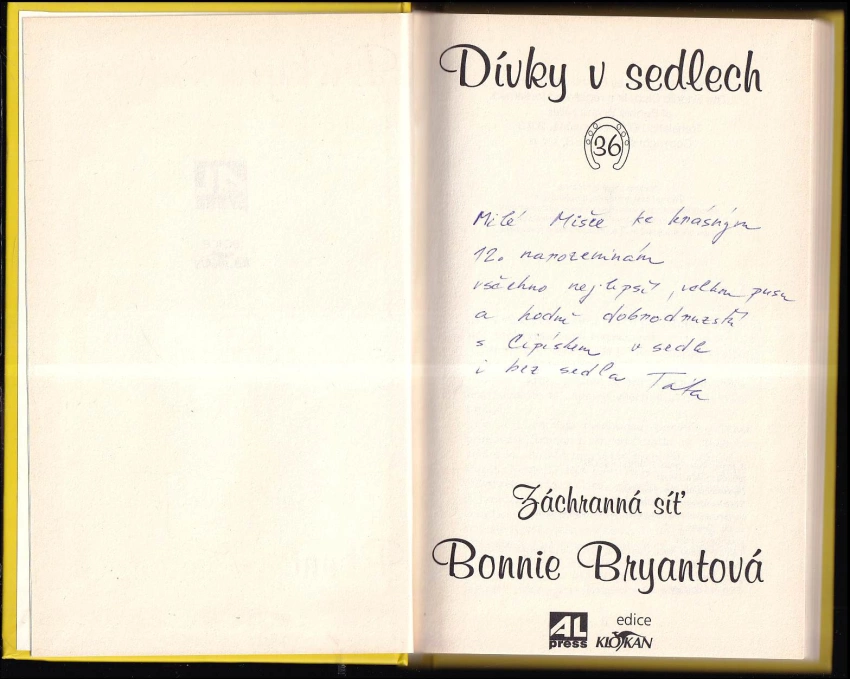 Dívky v sedlech
36
Milé Mišce ke krásným
12. narozeninám
všechno nejlepší, velkou pusu
a hodně dobrodružství
s Cipískem v sedle
i bez sedla Táta
Záchranná síť
Bonnie Bryantová
AL press
edice
KLOKAN